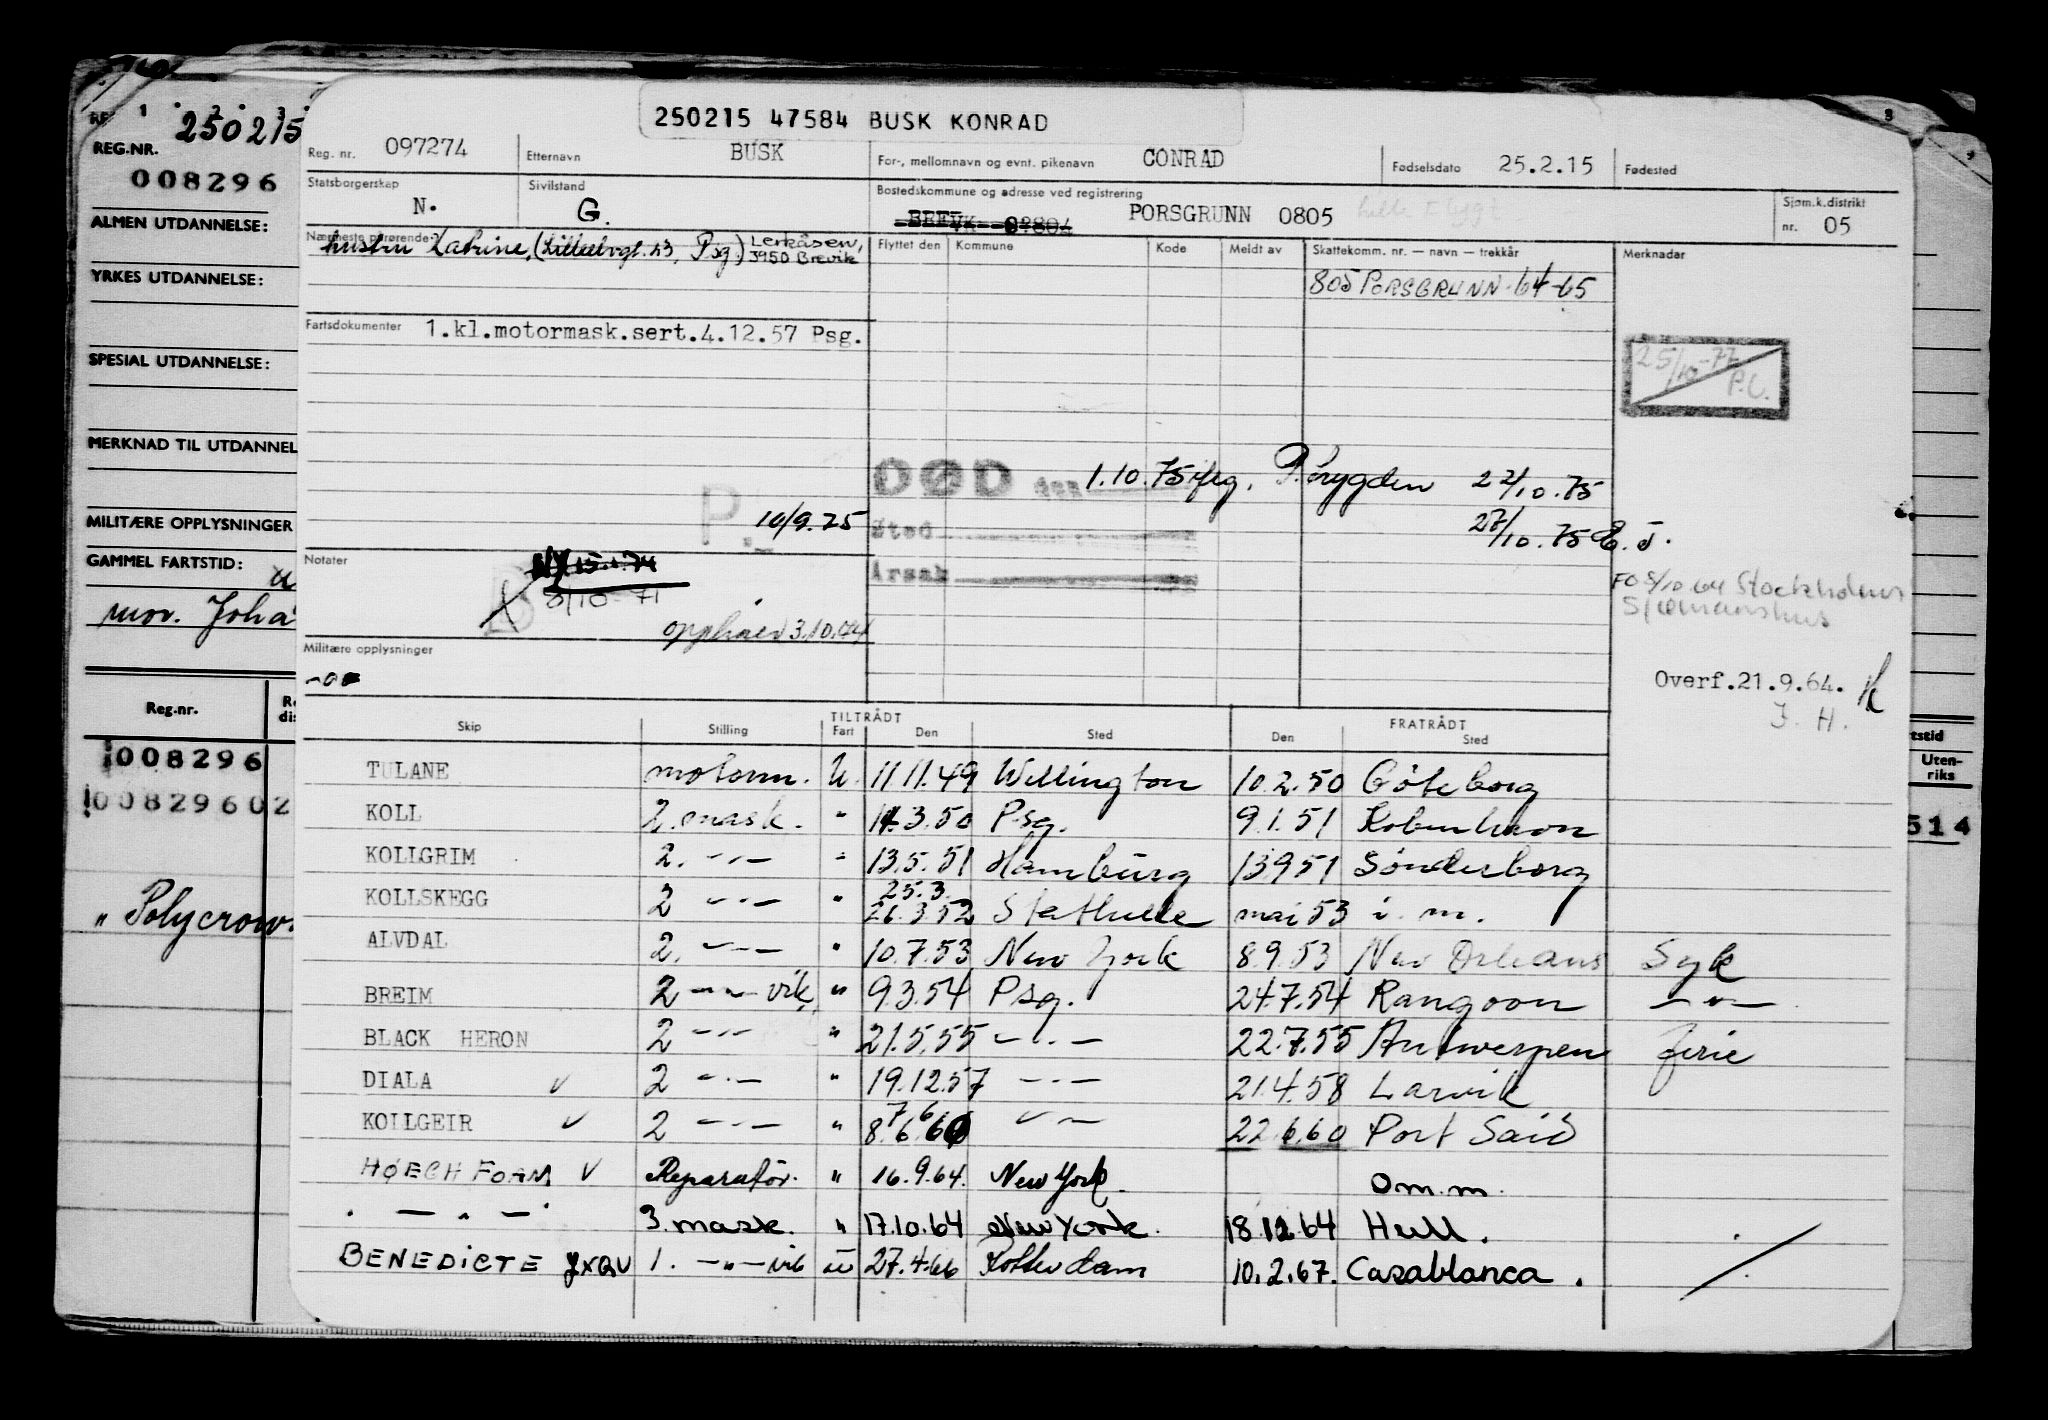 250215 47584 BUSK KONRAD
Reg. nr. 097274 Etternavn BUSK For-, mellomnavn og evnt. pikenavn CONRAD Fødselsdato 25.2.15 Fødested
Statsborgerskap N. Sivilstand G. Bostedskommune og adresse ved registrering PORSGRUNN 0805 Sjøm.k.distrikt nr. 05
Nærmeste pårørende: hustru Katrine, Psg.) Lerkåsen, 3950 Brevik
Flyttet den Kommune Kode Meldt av Skattekomm. nr. — navn — trekkår Merknader
805 PORSGRUNN-64-65
Fartsdokumenter 1.kl.motormask.sert.4.12.57 Psg.
25/10-77 P.C.
DØD den 1.10.75 iflg. P.trygden 22/10.75
P. 10/9.75
Sted 27/10.75 E.J.
Årsak
Notater
8/10-71
opphør 3.10.64
FO 5/10 64 Stockholms Sjømannshus
Militære opplysninger
Overf.21.9.64. K
J. H.
Skip Stilling TILTRÅDT Fart Den Sted FRATRÅDT Den Sted
TULANE motorm. U. 11.11.49 Wellington 10.2.50 Göteborg
KOLL 2. mask. " 14.3.50 Psg. 9.1.51 København
KOLLGRIM 2. -"- " 13.5.51 Hamburg 13.9.51 Sønderborg
KOLLSKEGG 2 -"- " 25.3. 26.3.52 Stathelle mai 53 i. m.
ALVDAL 2. -"- " 10.7.53 New York 8.9.53 New Orleans Syk
BREIM 2 -"- vik. " 9.3.54 Psg. 24.7.54 Rangoon -"-
BLACK HERON 2 -"- " 21.5.55 -"- 22.7.55 Antwerpen ferie
DIALA v 2 -"- " 19.12.57 -"- 21.4.58 Larvik
KOLLGEIR v 2 -"- " 7.6. 8.6.60 -"- 22.6.60 Port Said
HØEGH FOAM v Reparatør. " 16.9.64. New York. Om.m.
" - " - 3. mask. " 17.10.64 New York. 18.12.64 Hull.
BENEDICTE JXQU 1. -"- vik " 27.4.66 Rotterdam 10.2.67. Casablanca.
250215
REG.NR.
008296
ALMEN UTDANNELSE:
YRKES UTDANNELSE:
SPESIAL UTDANNELSE:
MERKNAD TIL UTDANNEL
MILITÆRE OPPLYSNINGER
GAMMEL FARTSTID:
Joha
Reg.nr.
008296
00829602
" Polycrow.
tstid
Uten-
riks
514